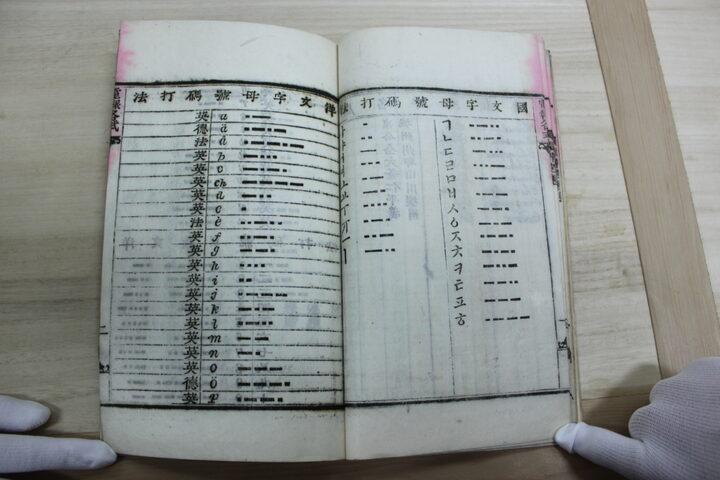 國文字母號碼打法
ㄱ
ㄴ
ㄷ
ㄹ
ㅁ
ㅂ
ㅅ
ㅇ
ㅈ
ㅊ
ㅋ
ㅌ
ㅍ
ㅎ
洋文字母號碼打法
英 a
德 ä
法 á
英 b
英 c
英 ch
英 d
英 e
法 é
英 f
英 g
英 h
英 i
英 j
英 k
英 l
英 m
英 n
英 o
德 ö
英 p